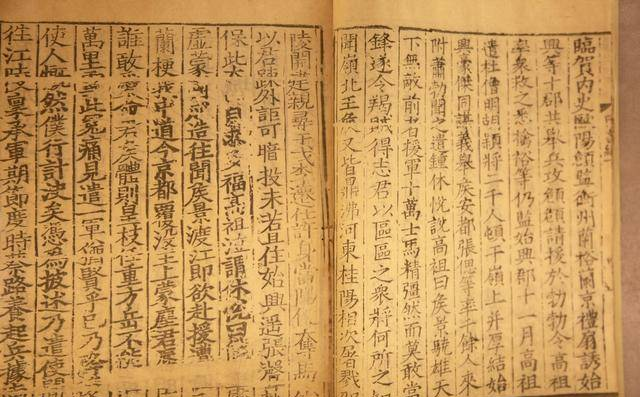 臨賀內史歐陽頠監衡州蘭裕蘭京禮扇誘始
興等十郡共舉兵攻頠頠請援於勃勃令高祖
率衆救之悉擒裕等仍監始興郡十一月高祖
遣杜僧明胡穎將二千人頓于嶺上并厚結始
興豪傑同謀義舉侯安都張偲等率千餘人來
附蕭勃聞之遣鍾休悅說高祖曰侯景驍雄天
下無敵前者援軍十萬士馬精彊然而莫敢當
鋒遂令羯賊得志君以區區之衆將何所之如
聞嶺北王侯又皆鼎沸河東桂陽相次屠戮邵
陵開建親尋干戈李遷仕許身當陽便奪馬仗
以君疎外詎可暗投未若且住始興遥張聲
保此太山自求多福高祖泣謂休悅曰僕
虛蒙國成造往聞侯景渡江即欲赴援遭
蘭梗我中道今京都覆没主上蒙塵君辱
誰敢愛命君侯體則皇枝任重方岳不能
萬里雪此冤痛見遣一軍猶賢乎已乃降
使人慨然僕行計決矣憑為披述乃遣使間
往江陵稟承軍期節度時蔡路養起兵據南